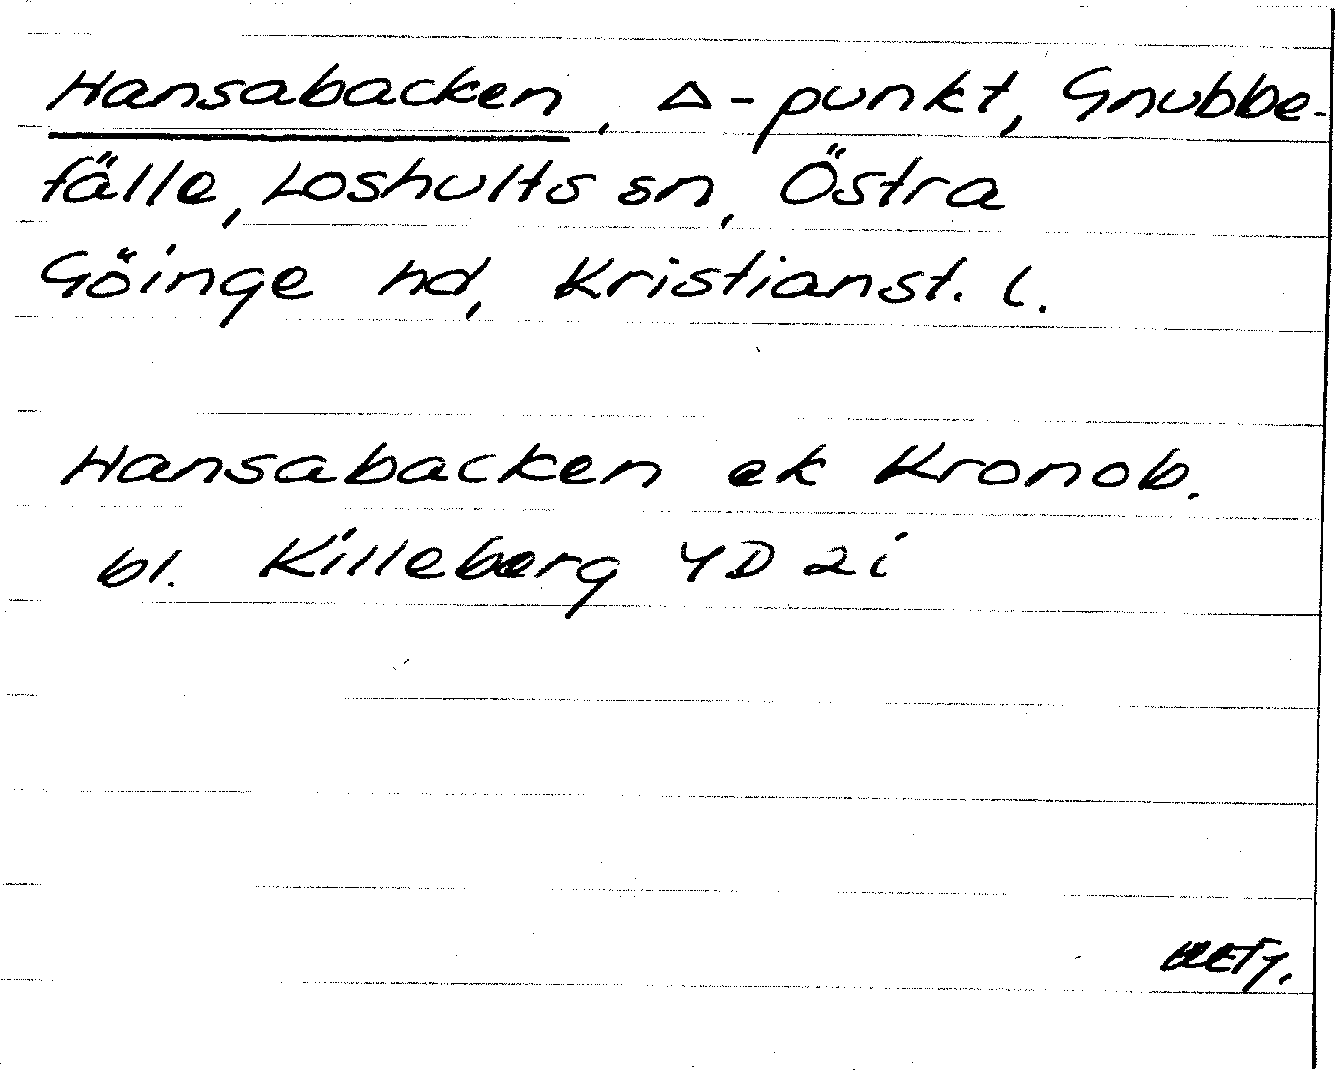 Hansabacken, △-punkt, Gnubbe-
fälle, Loshults sn, Östra
Göinge hd, Kristianst. l.
Hansabacken ek Kronob.
bl. Killeberg 4D 2i